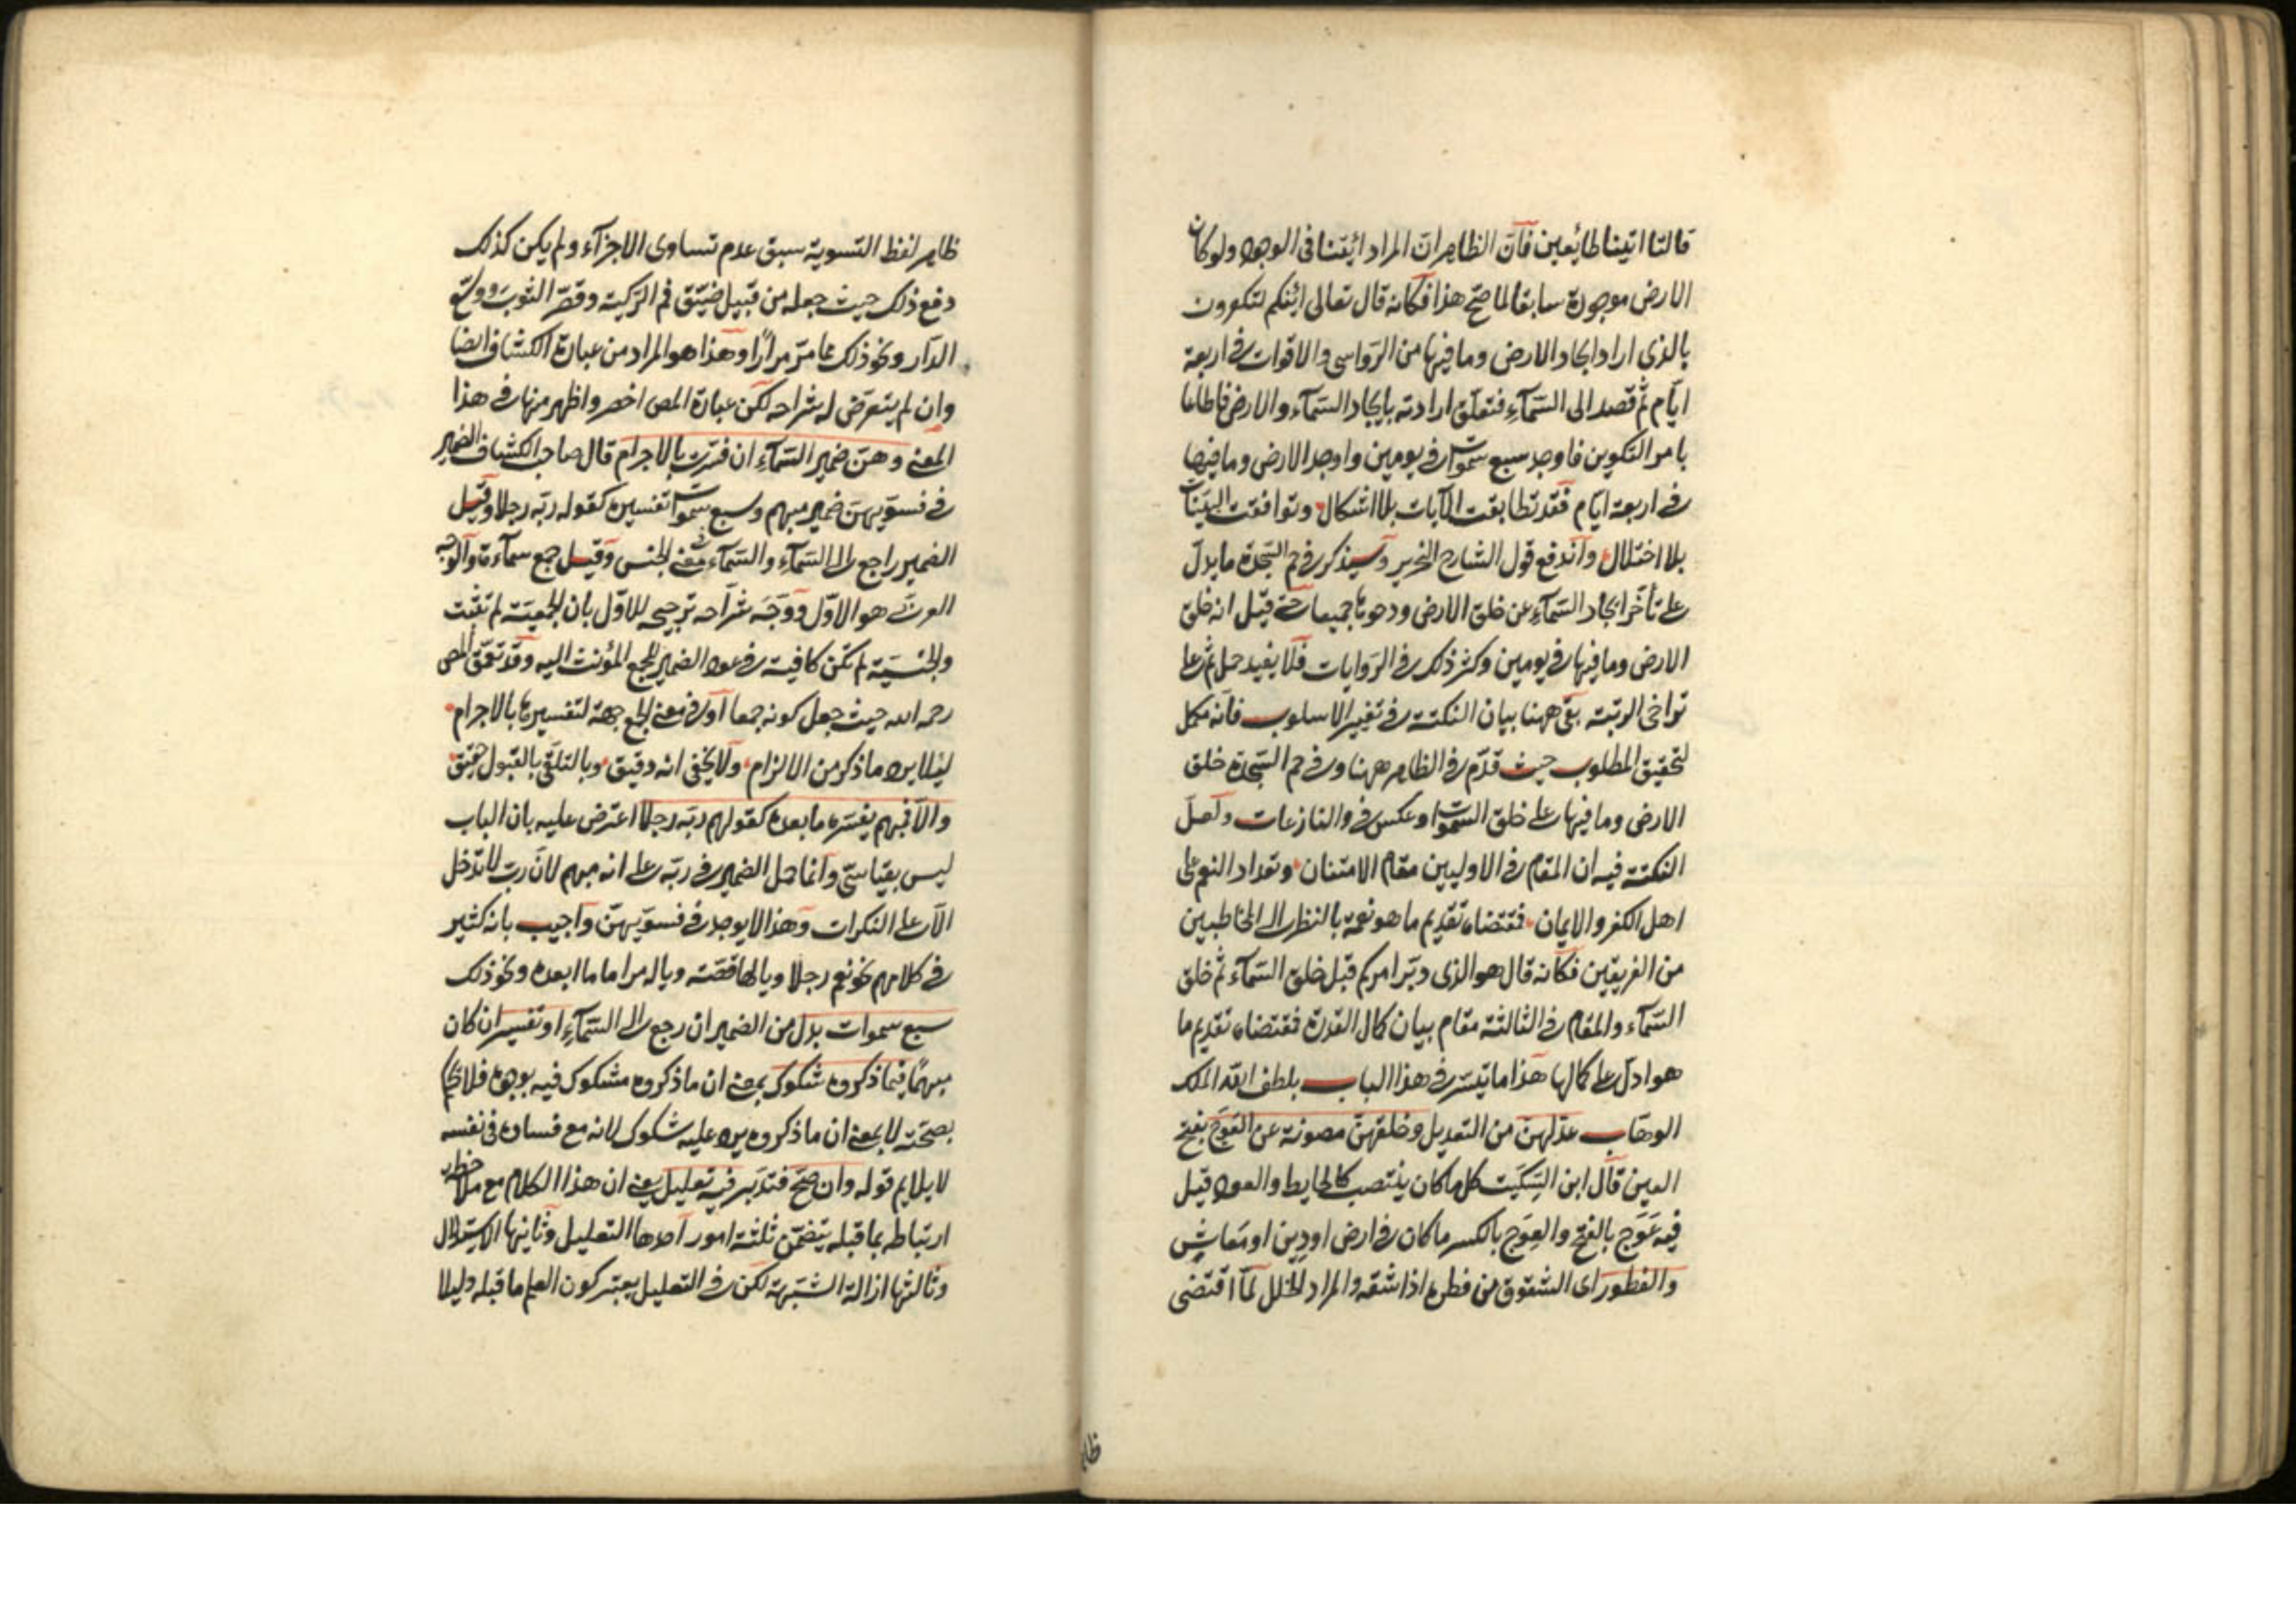 قالتا اتينا طائعين فان الظاهر ان المراد ائتنا في الوجود ولو كان
الارض موجودة سابقا لما صح هذا فكانه قال تعالى ائنكم لتكفرون
بالذي اراد ايجاد الارض وما فيها من الرواسي والاقوات في اربعة
ايام ثم قصد الى السمآء فتعلق ارادته بايجاد السمآء والارض فاطاعا
بامر التكوين فاوجد سبع سموات في يومين واوجد الارض وما فيها
في اربعة ايام فقد تطابقت الآيات بلا اشكال وتوافقت البينات
بلا اختلال واندفع قول الشارح النحرير وسيذكر في حم السجدة ما يدل
على تأخر ايجاد السمآء عن خلق الارض ودحوها جميعا حتى قيل انه خلق
الارض وما فيها في يومين وكثر ذلك في الروايات فلا يفيد حمل ثم على
تراخى الرتبة بقي ههنا بيان النكتة في تغيير الاسلوب فانه مكمل
لتحقيق المطلوب حيث قدم في الظاهر ههنا وفي حم السجدة خلق
الارض وما فيها على خلق السموات وعكس في والنازعات ولعل
النكتة فيه ان المقام في الاوليين مقام الامتنان وتعداد النعم على
اهل الكفر والايمان فمقتضاه تقديم ما هو نعمة بالنظر الى المخاطبين
من الفريقين فكانه قال هو الذي دبر امركم قبل خلق السمآء ثم خلق
السمآء والمقام في الثالثة مقام بيان كمال القدرة فمقتضاه تقديم ما
هو ادل على كمالها هذا ما تيسر في هذا الباب بلطف الله الملك
الوهاب عدلهن من التعديل وخلقهن مصونة عن العوج بفتح
العين قال ابن السكيت كل ما كان ينتصب كالحايط والعود قيل
فيه عوج بالفتح والعوج بالكسر ما كان في ارض او دين او معاش
والفطور اى الشقوق من فطره اذا شقه والمراد الخلل لما اقتضى
ظا
ظاهر لفظ التسوية سبق عدم تساوى الاجزآء ولم يكن كذلك
دفع ذلك حيث جعله من قبيل ضيق فم الركية وقصر الثوب ووسع
الدار ونحو ذلك مما مر مرارا وهذا هو المراد من عبارة الكشاف ايضا
وان لم يتعرض له شراحه لكن عبارة المص اخصر واظهر منها في هذا
المعنى وهن ضمير السمآء ان فسرت بالاجرام قال صاحب الكشاف الضمير
في فسويهن ضمير مبهم وسبع سموات تفسيره كقوله ربه رجلا وقيل
الضمير راجع الى السمآء والسمآء في معنى الجنس وقيل جمع سماءة والوجه
العربي هو الاول ووجه شراحه ترجيحه للاول بان الجمعية لم تثبت
والجنسية لم تكن كافية في عود الضمير الجمع المؤنث اليه وقد تعمق المص
رحمه الله حيث جعل كونه جمعا او في معنى الجمع جهة لتفسيرها بالاجرام
ليلا يرد ما ذكر من الالزام ولا يخفى انه دقيق وبالتلقي بالقبول حقيق
والا فمبهم يفسره ما بعده كقولهم ربه رجلا اعترض عليه بان الباب
ليس بقياسي وانما حمل الضمير في ربه على انه مبهم لان رب لا تدخل
الا على النكرات وهذا لا يوجد في فسويهن واجيب بانه كثير
في كلامهم نحو نعم رجلا ويا لها قصة وياله مراما ما ابعده ونحو ذلك
سبع سموات بدل من الضمير ان رجع الى السمآء او تفسير ان كان
مبهما فيما ذكروه شكوك بمعنى ان ما ذكروه مشكوك فيه بوجوه فلا يحكم
بصحته لا بمعنى ان ما ذكروه يرد عليه شكوك لانه مع فساده في نفسه
لا يلايم قوله وان صح فتدبر فيه تعليل يعني ان هذا الكلام مع ملاحظة
ارتباطه بما قبله يتضمن ثلثة امور احدها التعليل وثانيها الاستدلال
وثالثها ازالة الشبهة لكن في التعليل يعتبر كون العلم ما قبله دليلا